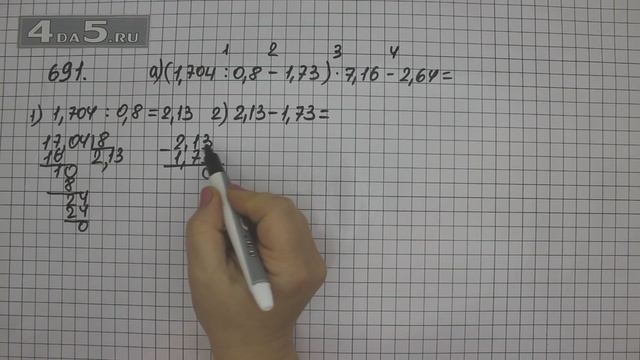 4DA5.RU
1 2 3 4
691. а)(1,704 : 0,8 - 1,73) · 7,16 - 2,64 =
1) 1,704 : 0,8 = 2,13 2) 2,13 - 1,73 =
17,04 8 - 2,13
16 2,13 1,7
10 0
8
24
24
0